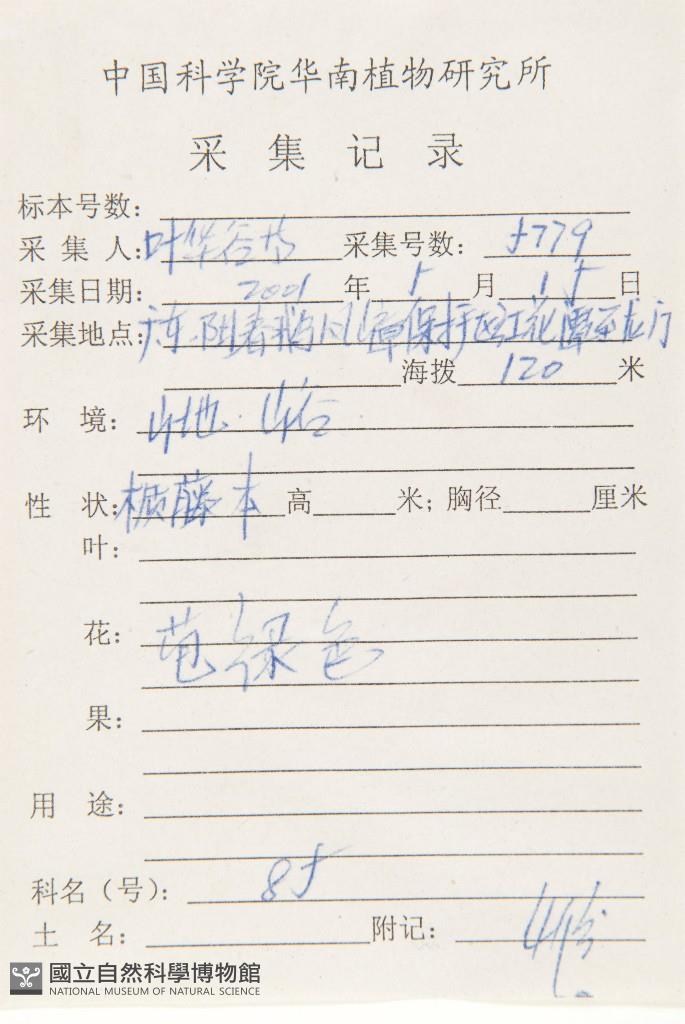 中国科学院华南植物研究所
采集记录
标本号数：
采集人：叶华谷等 采集号数：5779
采集日期：2001年5月15日
采集地点：广东.阳春鹅凰嶂保护区红花潭至
海拨120米
环境：山地.山谷
性状：藤本 高 米；胸径 厘米
叶：
花：苞绿色
果：
用途：
科名（号）：85
土名： 附记：
國立自然科學博物館
NATIONAL MUSEUM OF NATURAL SCIENCE